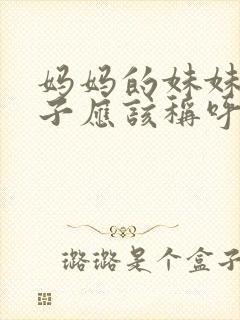 妈妈的妹妹
子应该称呼
璐璐是个盒子